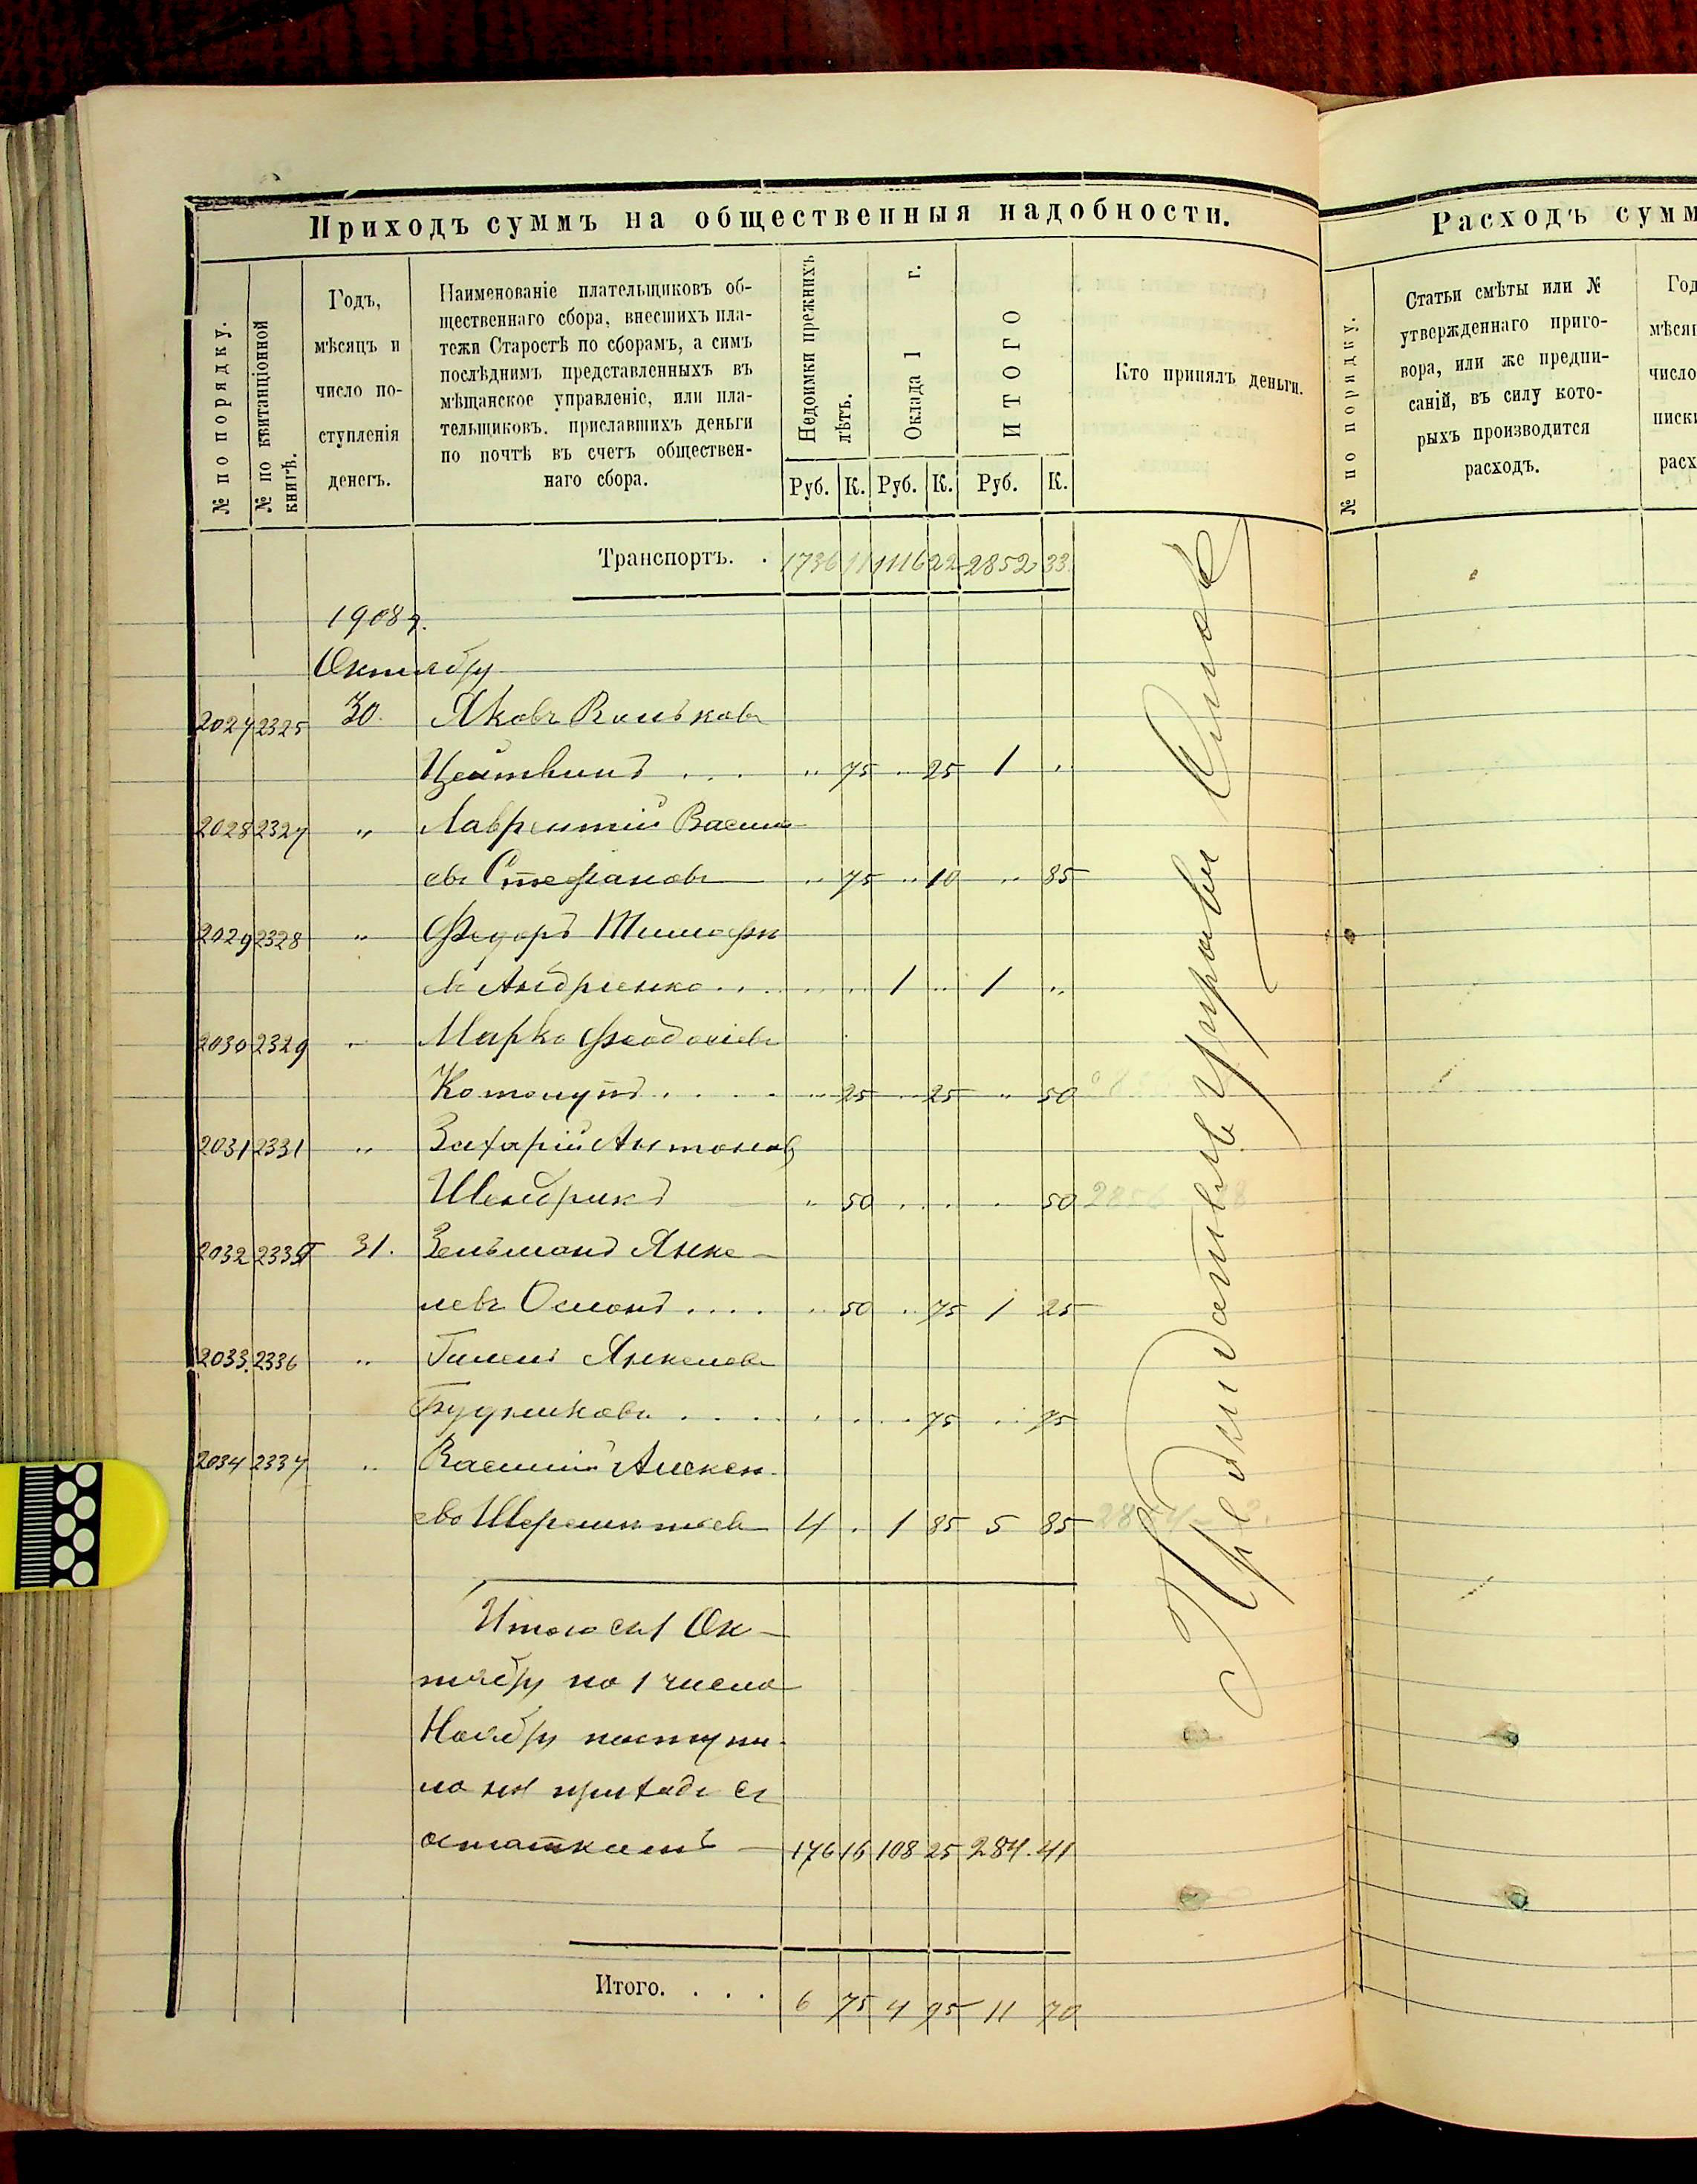 Приходъ суммъ на общественныя надобности.
№ по порядку.
№ по квитанціонной книгѣ.
Годъ,
мѣсяцъ и
число по-
ступленія
денегъ.
Наименованіе плательщиковъ об-
щественнаго сбора, внесшихъ пла-
тежи Старостѣ по сборамъ, а симъ
послѣднимъ представленныхъ въ
мѣщанское управленіе, или пла-
тельщиковъ, приславшихъ деньги
по почтѣ въ счетъ обществен-
наго сбора.
Недоимки прежнихъ
лѣтъ.
Оклада 1 г.
ИТОГО
Руб. К. Руб. К. Руб. К.
Кто принялъ деньги.
Транспортъ. . 1736 11 1116 22 2852 33
1908 г.
Октября
2027 2325 30. Яковъ Вольковъ
Цейтлинъ . . . " 75 " 25 1 "
2028 2327 " Лаврентій Васил
евъ Стефановъ " 75 " 10 " 85
2029 2328 " Федоръ Тимофе
евъ Андріенко . . . . . . 1 " 1 "
2030 2329 " Марко Феодосіевъ
. . . . " 25 " 25 " 50
2031 2331 " Захарій Антоновъ
Шендрикъ " 50 . . . 50
2032 31. Зельманъ Янке-
левъ . . . . " 50 " 75 1 25
2033 2336 " Янкелевъ
. . . . . . . 75 " 75
2034 2337 " Василій Алексѣ
ево Шереметьев 4 . 1 85 5 85
Итого съ 1 Ок-
тября по 1 число
Ноября поступи-
ло на приходъ съ
остаткомъ — 176 16 108 25 284. 41
Итого. . . . 6 75 4 95 11 70
Предсѣдатель Управы
Расходъ сумм
№ по порядку.
Статьи смѣты или №
утвержденнаго приго-
вора, или же предпи-
саній, въ силу кото-
рыхъ производится
расходъ.
Год
мѣсяц
число
писки
расх